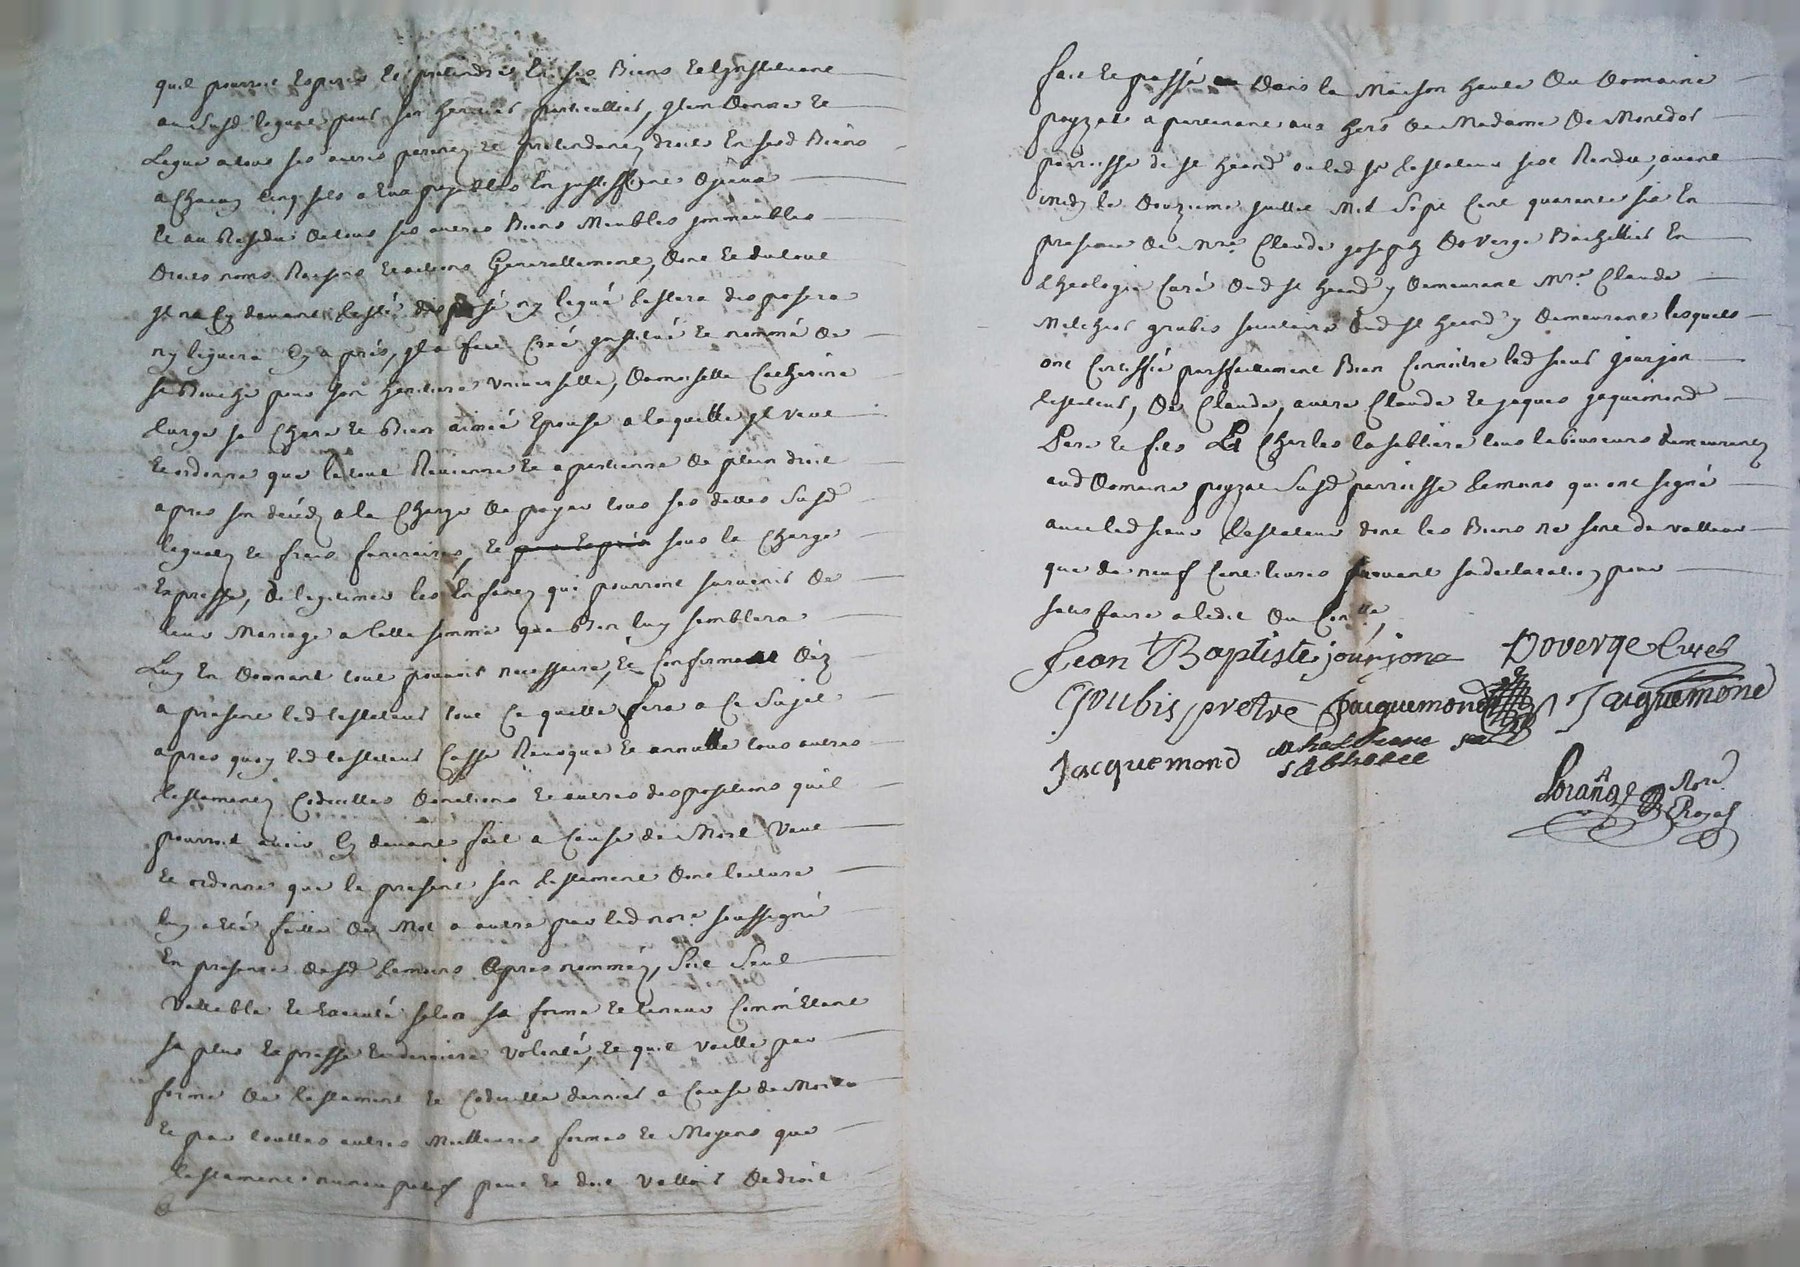 quil pourroit esperer et pretendre en ses Biens et linstituant
audit legat pour son heritier particullier, item donne et
Legue a tous ses autres parents et pretendants droits en sesd Biens
a chacun cinq sols
et au Residu de tous ses autres Biens Meubles immeubles
droits noms Raisons et actions Generallement, dont et du tout
il na cy devant testé disposé ny legué testera disposera
ny leguera cy apres, il a fait creé institué et nommé de
sa Bouche pour son heritiere universelle, damoiselle Catherine
Lurge sa chere et Bien aimée Epouse a laquelle il veut
et ordonne que le tout Revienne et apartienne de plein droit
apres son décéds a la charge de payer tous ses dettes susd
legats et frais funeraires, et sous la charge
Expresse, de legitimer les Enfants qui pourront survenir de
leur Mariage a telle somme que Bon luy semblera
Luy En donnant tout pouvoir necessaire, et Confirmant dèz
a present led testateur tout ce quelle fera a ce sujet
apres quoy led testateur Casse Revoque et annulle tous autres
testaments Codicilles donations et autres dispositions quil
pourroit avoir cy devant fait a Cause de Mort veut
et ordonne que le present son testament dont lecture
luy a été faitte de Mot a autre par led nore soussigné
En presence desd temoins apres nommés, soit seul
vallable et Executé selon sa forme et teneur Comme Etant
sa plus expresse et derniere volonté, et quil vaille par
forme de testament et Codicille dernier a Cause de Mort
et par touttes autres Meilleures formes et Moyens que
testament nuncupatif peut et doit valloir de droit
fait et passé dans la Maison haute du domaine
poyzat apartenant aux hers de Madame de Montdor
parroisse de st heand ou led sr testateur sest Rendu, avant
midy le douzieme juillet Mil Sept Cent quarante six En
presence de Mre Claude joseph Doverge Bachellier En
theologie Curé dud st heand y demeurant Mre Claude
Melchior grubis societaire dud st heand y demeurant lesquels
ont Certiffié parffaittement Bien Connoitre led sieur jourjon
testateur, de Claude, autre Claude et jaques jaquemond
Pere et fils Et Charles la sabliere tous laboureurs demeurants
aud domaine poyzat susd parroisse temoins qui ont signé
avec led sieur testateur dont les Biens ne sont de valleur
que de neuf Cent livres suivant sa declaration pour
satisfaire a ledit du Conlle,
Jean Baptiste jourjon Doverge Curé
Grubis pretre Jacquemond Jacquemond
Jacquemond
sabliere
Lorange Nore
Royal